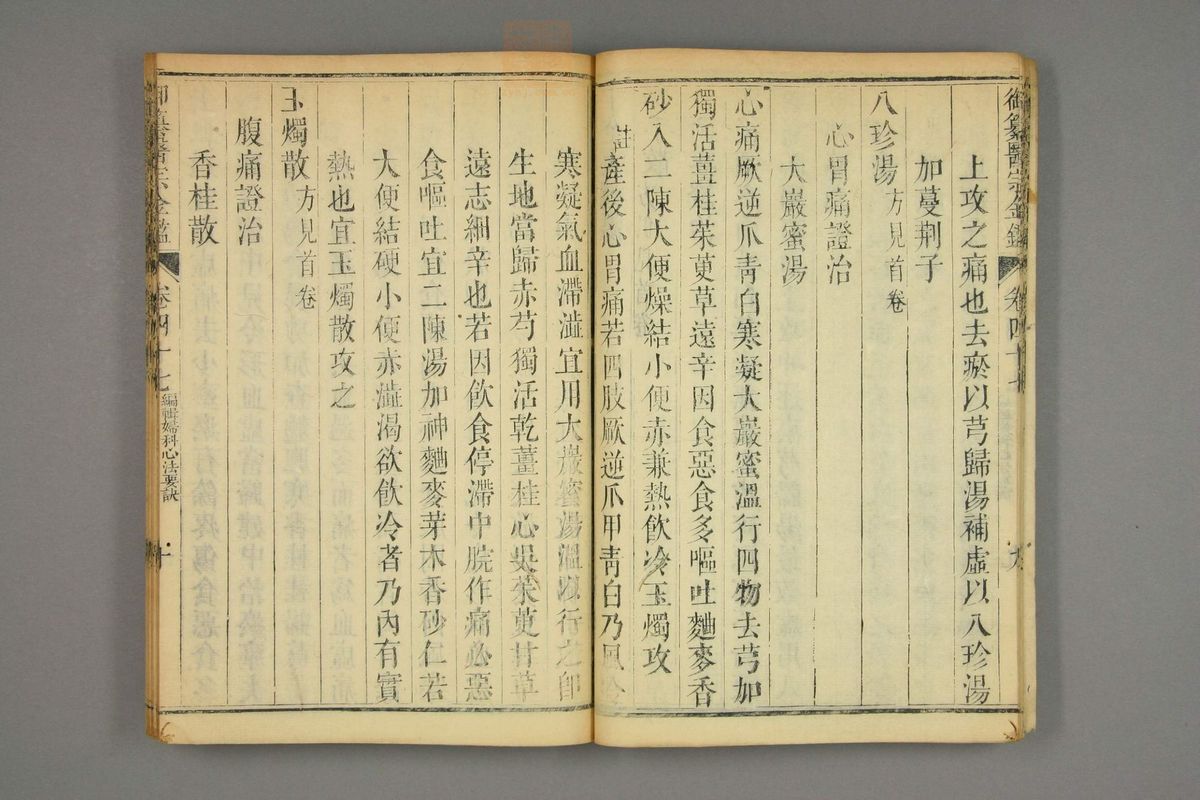 御纂醫宗金鑑 卷四十七 九
上攻之痛也去瘀以芎歸湯補虛以八珍湯
加蔓荆子
八珍湯 方見首卷
心胃痛證治
大巖蜜湯
心痛厥逆爪青白寒凝大巖蜜溫行四物去芎加
獨活薑桂茱萸草遠辛因食惡食多嘔吐麯麥香
砂入二陳大便燥結小便赤兼熱飲冷玉燭攻
註產後心胃痛若四肢厥逆爪甲青白乃風冷
寒凝氣血滯澁宜用大巖蜜湯溫以行之卽
生地當歸赤芍獨活乾薑桂心吳茱萸甘草
遠志細辛也若因飲食停滯中脘作痛必惡
食嘔吐宜二陳湯加神麯麥芽木香砂仁若
大便結硬小便赤澁渴欲飲冷者乃內有實
熱也宜玉燭散攻之
玉燭散 方見首卷
腹痛證治
香桂散
御纂醫宗金鑑 卷四十七 編輯婦科心法要訣 十